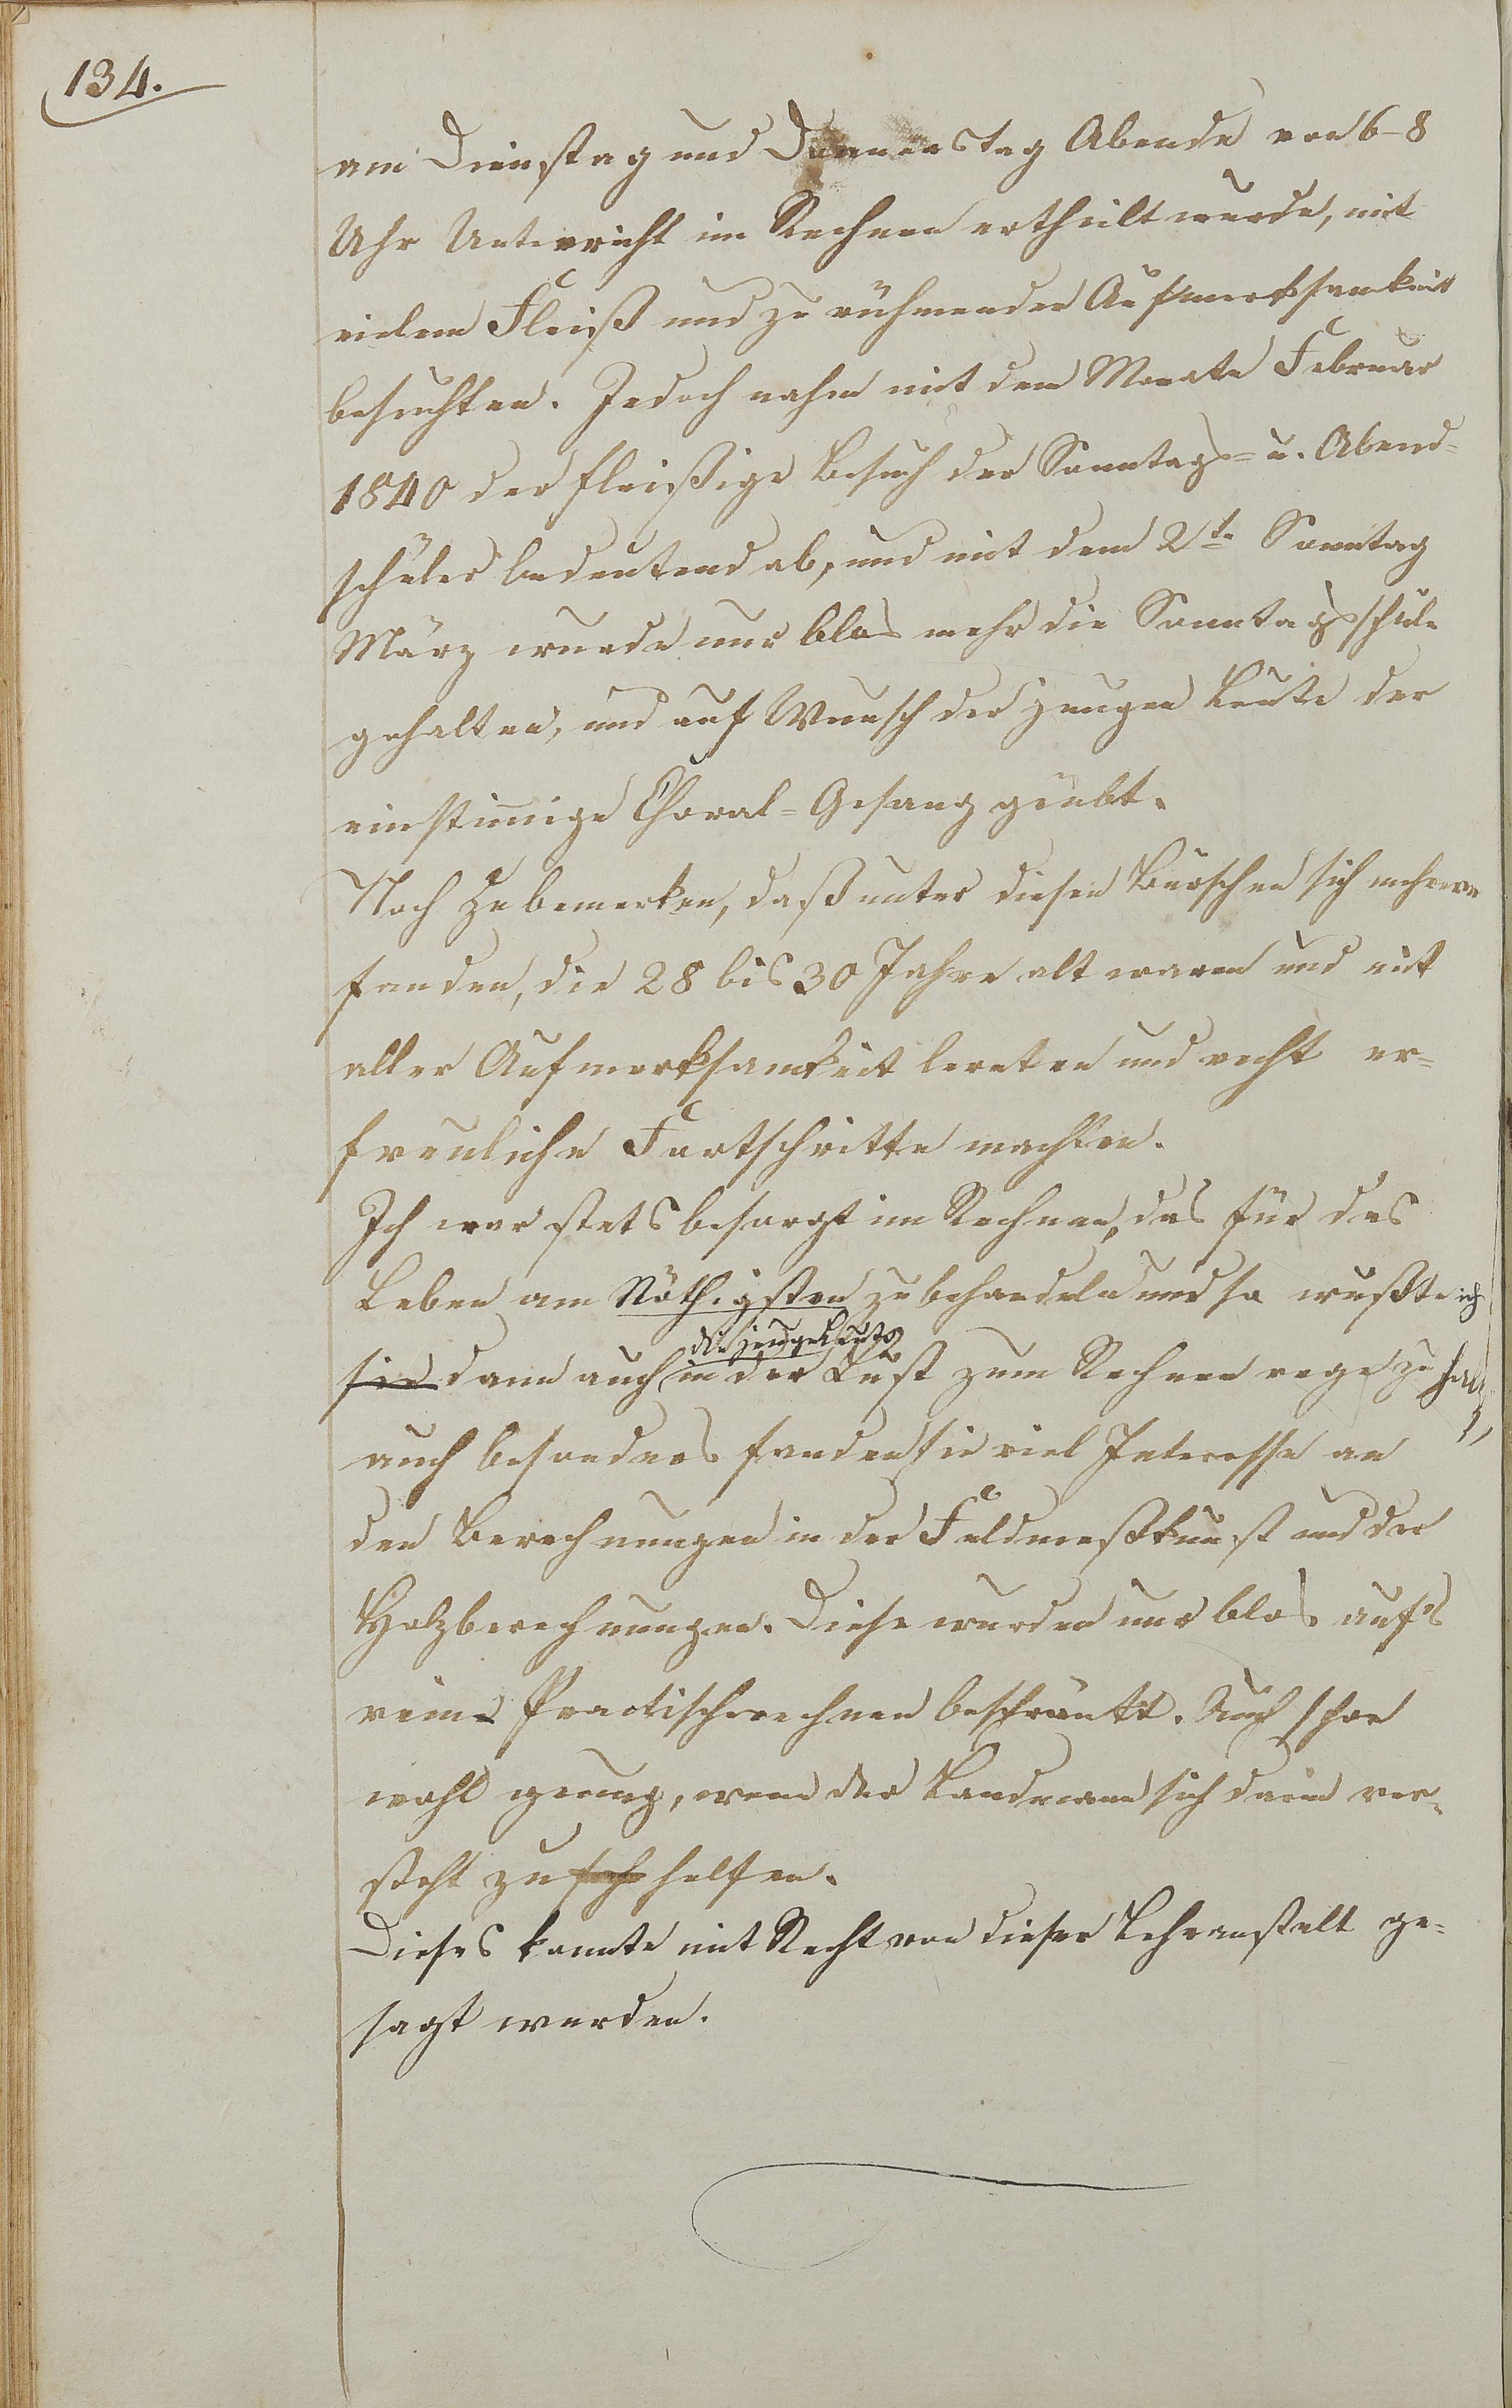 134.
am Dienstag und Donnerstag Abende von 6-8
Uhr Unterricht im Rechnen ertheilt wurde, mit
vielem Fleiß und zu rühmender Aufmerksamkeit
besuchten. Jedoch nahm mit dem Monate Februar
1840 der fleißige Besuch der Sonntags= u. Abend=
schüler bedeutend ab, und mit dem 2t. Sonntag
März wurde nur blos mehr die Sonntagsschule
gehalten, und auf Wunsch der jungen Leute der
einstimige Choral=Gesang geübt.
Noch zu bemerken, daß unter diesen Burschen sich mehrere
fanden, die 28 bis 30 Jahre alt waren und mit
aller Aufmerksamkeit lernten und recht er=
freuliche Fortschritte machten.
Ich war stets besorgt im Rechnen, das für das
Leben am Nöthigsten zu behandeln und so wußte ich
die junge Leute
sie dann auch in der Lust zum Rechnen rege zu halten,
auch besonders fanden sie viel Interesse an
den Berechnungen in der Feldmeßkunst und der
Holzberechnungen. Diese wurden nur blos auf's
reine Practischrechnen beschränkt. Auch schon
wohl genug, wenn der Landmann sich darin ver=
steht zu helfen.
Dieses konnte mit Recht von dieser Lehranstalt ge=
sagt werden.